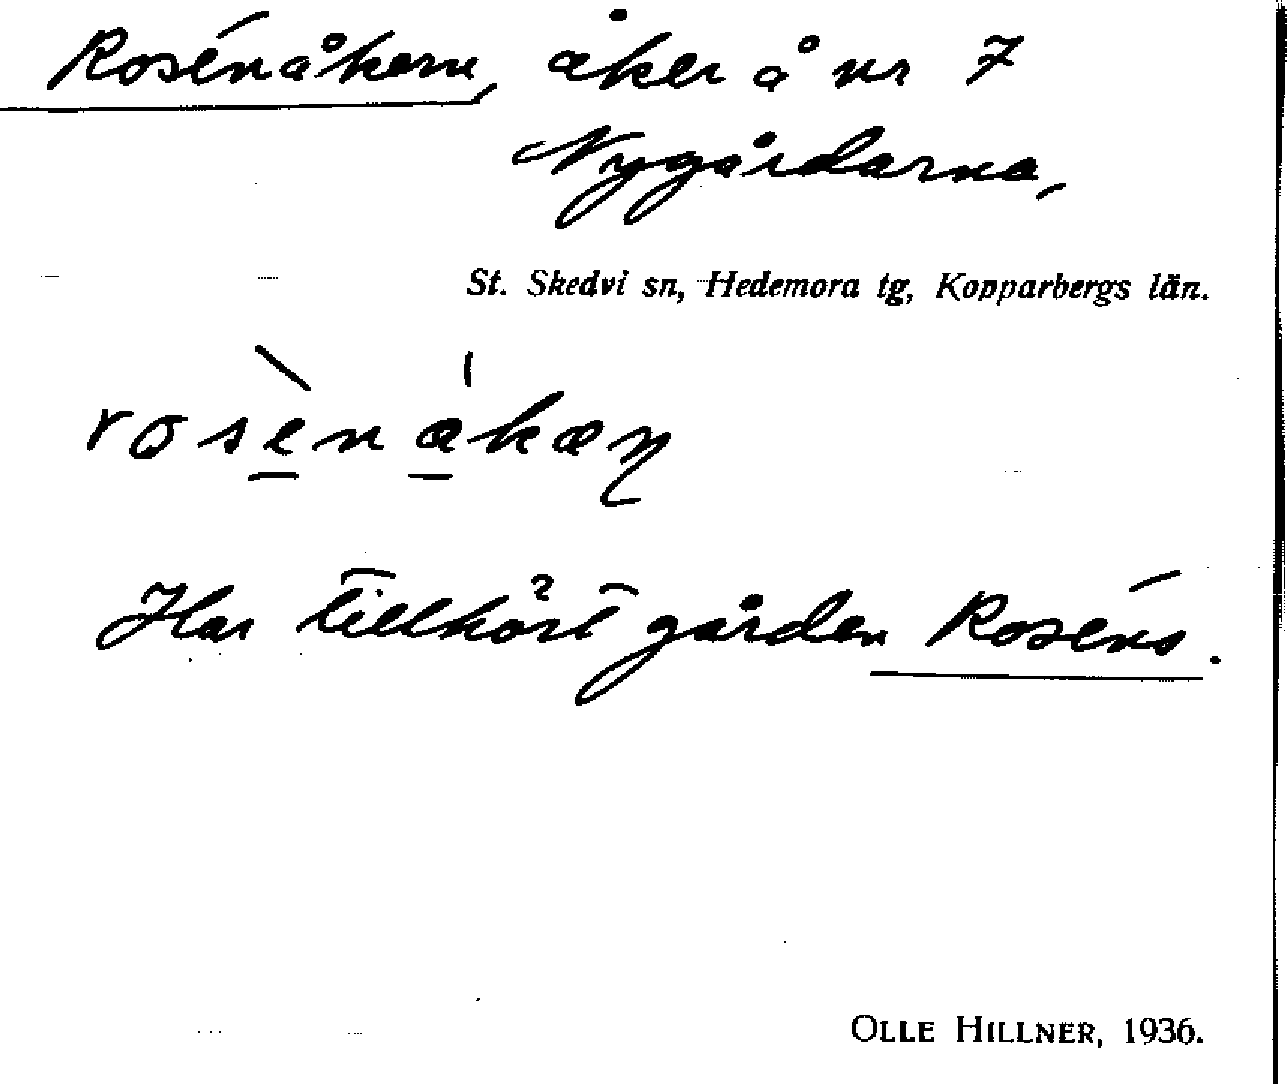 Rosénåkern, åker å nr 7
Nygårdarna,
St. Skedvi sn, Hedemora tg, Kopparbergs län.
Har tillhört gården Roséns.
OLLE HILLNER, 1936.